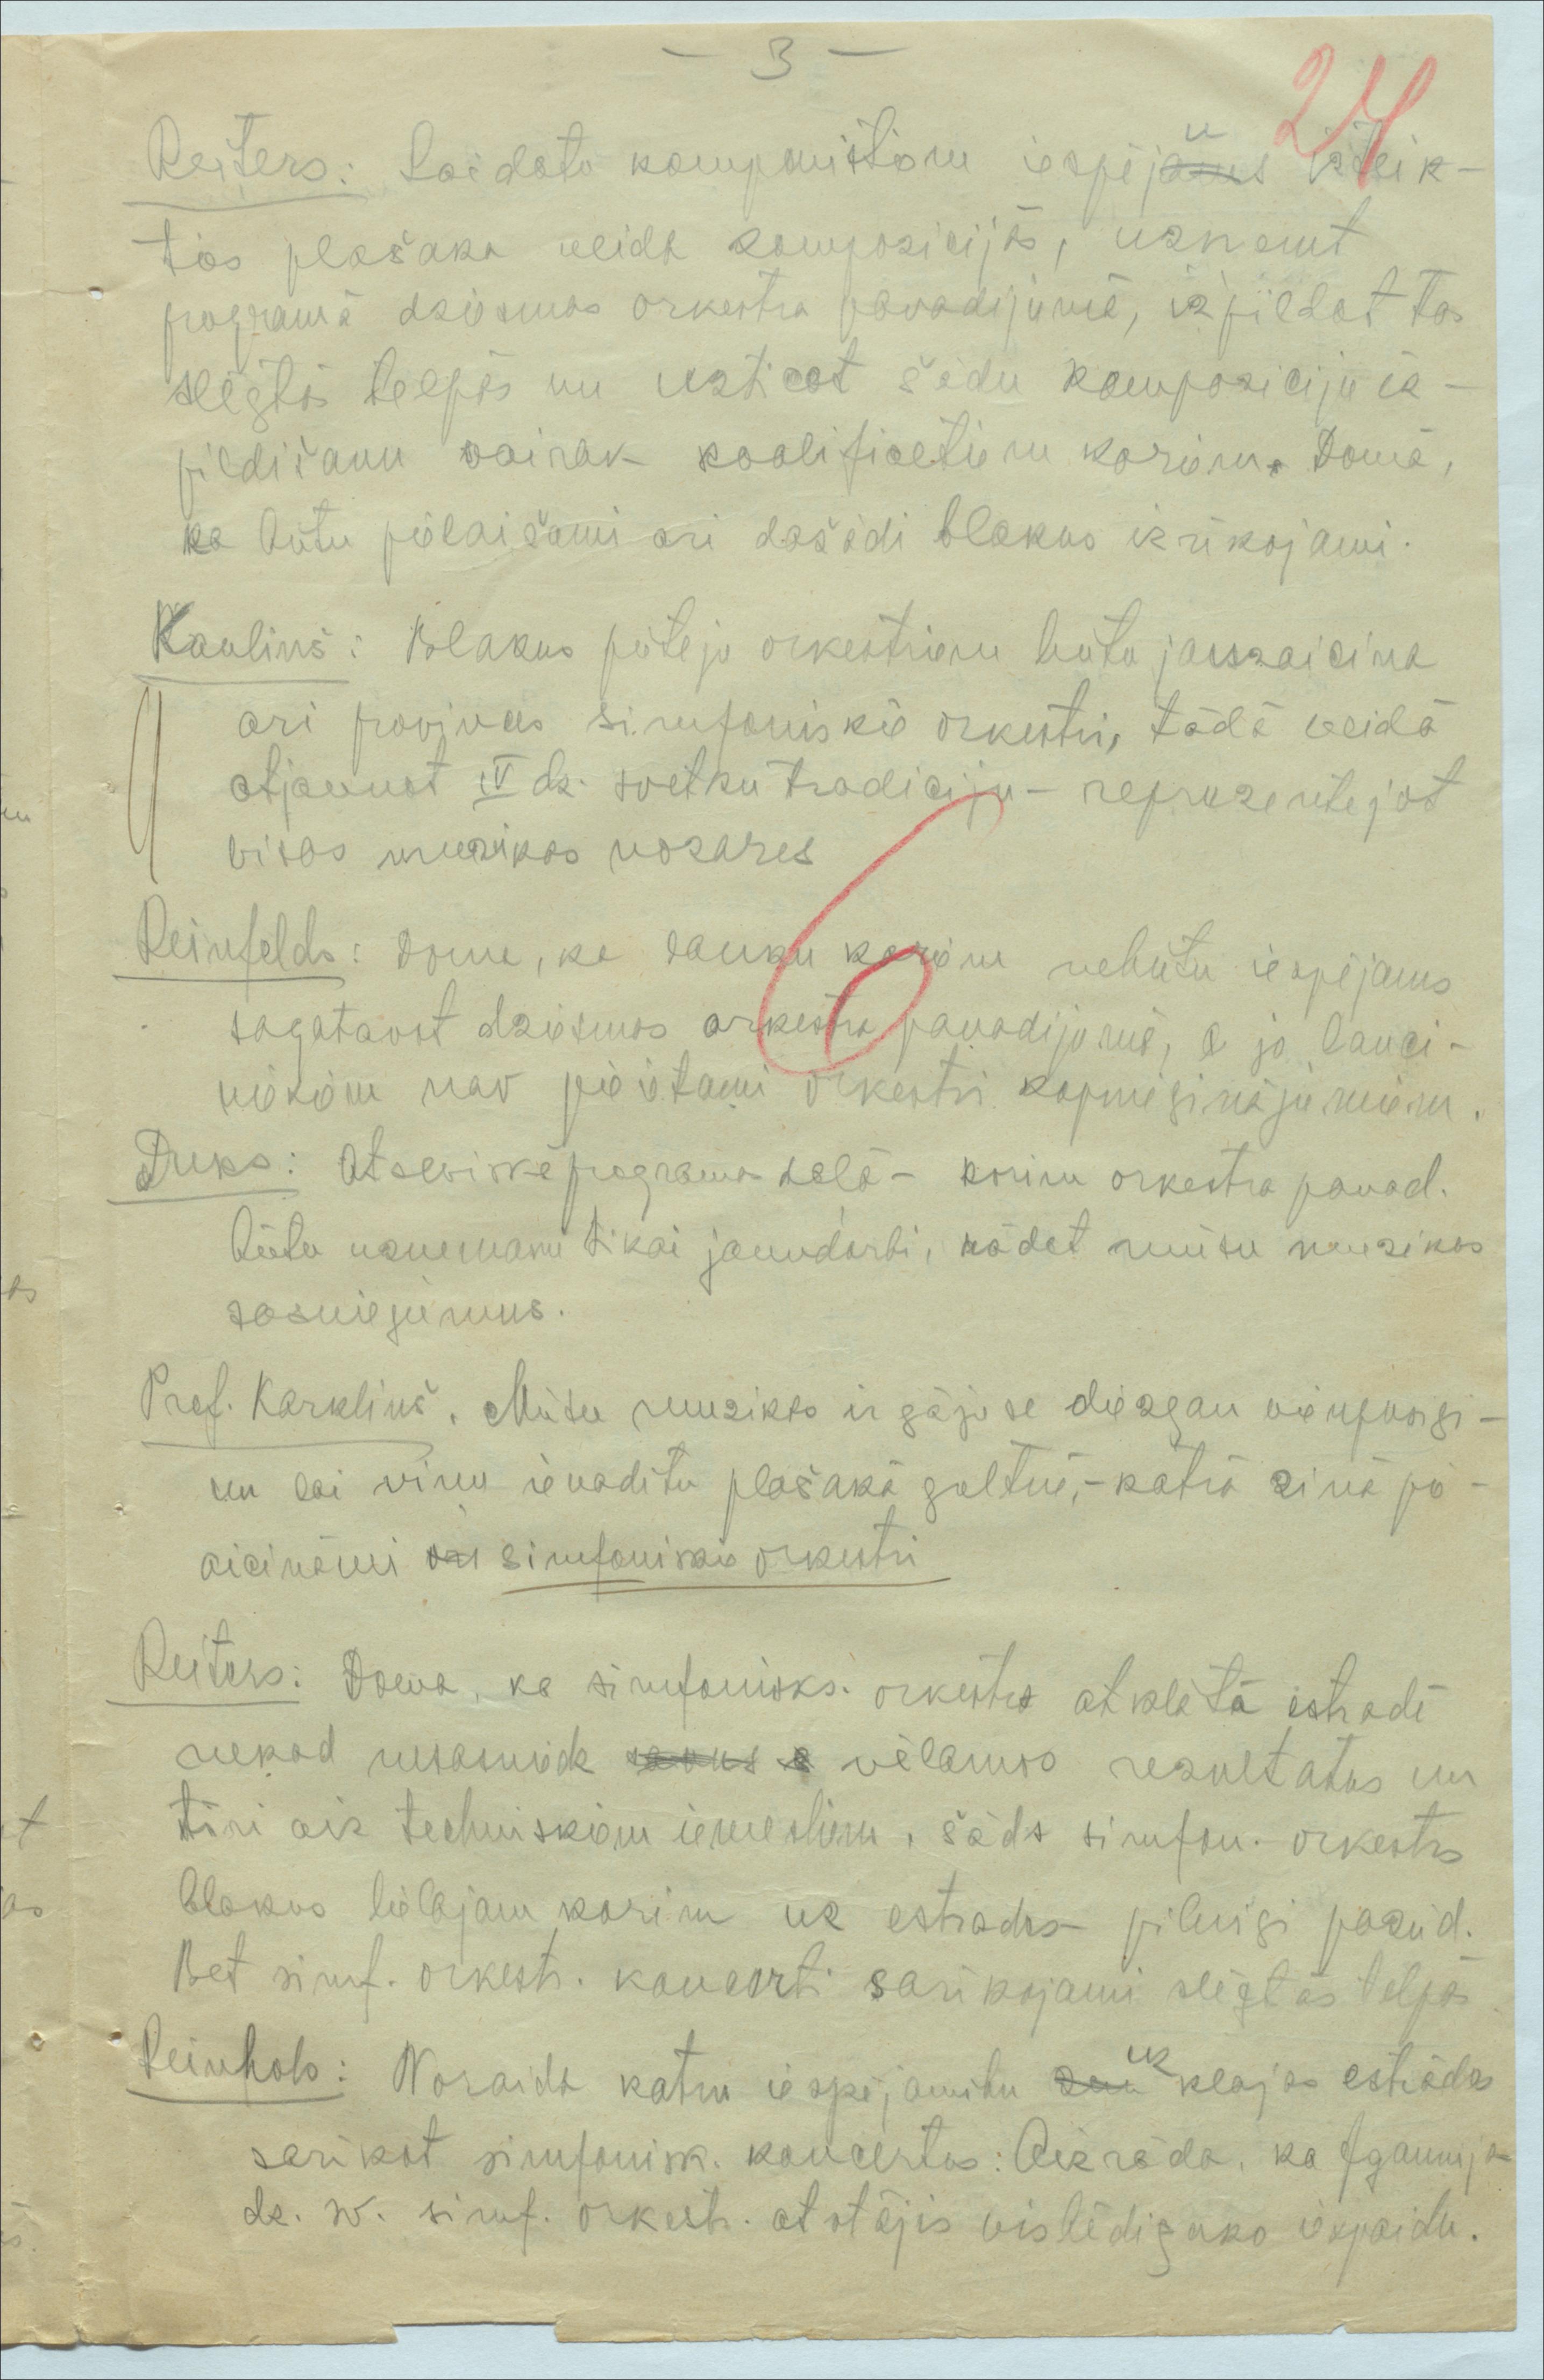 - 3 -
24
Reiters: Lai dotu komponistiem iespēju izteik-
ties plašaka veida kompozicijās, uzņemt
programā dziesmas orkestra pavadijumā, izpildot tas
slēgtās telpās un uzticot šādu kompoziciju iz-
pildišanu vairak kvalificetiem koriem. Domā,
ka butu pielaišami ari dažādi blakus izrīkojami.
Kauliņš: Blakus pūteju orkestriem butu jauzaicina
ari provinces simfoniskie orkestri, tādā veidā
atjaunot IV dz. svetku tradiciju - reprezentejot
visas muzikas nozares
Reinfelds: Doma, ka lauku koriem nebutu iespējams
sagatavot dziesmas orkestra pavadijumā, jo lauci-
niekiem nav pieietami orkestri kopmēģinajumiem.
Duks: Atseviskā programas daļā - koriem orkestra pavad.
būtu uzņemami tikai jaundarbi, rādot mūsu muzikas
sasniegumus.
Prof. Karkliņš. Mūsu muzikas ir gājuse diezgan vienpusigi -
un lai viņu ievaditu plašakā gultnē, - katrā ziņā pie-
aicinami simfoniskie orkestri
Reiters: Doma, ka simfonisks. orkestrs atklātā estradē
nekad nesasniedz vēlamos rezultatus un
tīri aiz techniskiem iemesliem, šāds simfon. orkestrs
blakus lielajam korim uz estrades pilnigi pazūd.
Bet simf. orkestr. koncerti sarīkojami slēgtās telpās
Reinholds: Noraida katru iespējamibu uz klajas estrādes
sarikot simfonisk. koncertus: Aizrāda, ka Igauņijas
dz. sv. simf. orkestr. atstājis vislēdigako iespaidu.